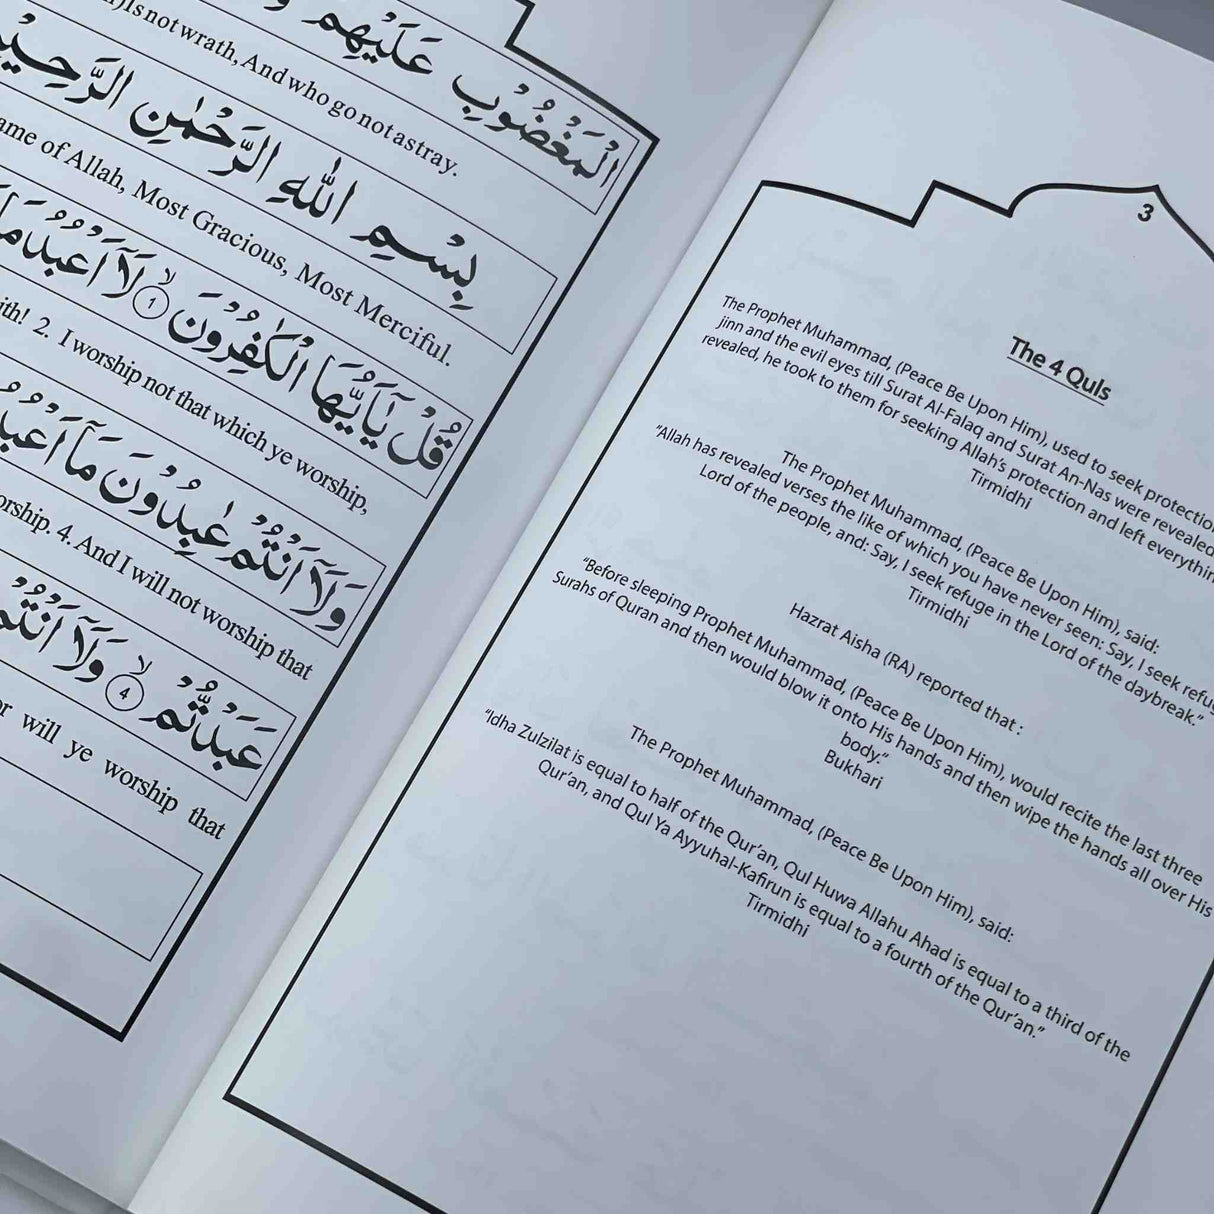 الْمَغْضُوْبِ عَلَيْهِمْ
Is not wrath, And who go not astray.
بِسْمِ اللهِ الرَّحْمٰنِ الرَّحِيْمِ
ame of Allah, Most Gracious, Most Merciful.
قُلْ يٰۤاَيُّهَا الْكٰفِرُوْنَ ١ لَاۤ اَعْبُدُ
ith! 2. I worship not that which ye worship,
وَلَاۤ اَنْتُمْ عٰبِدُوْنَ مَاۤ اَعْبُدُ
orship. 4. And I will not worship that
عَبَدْتُّمْ ٤ وَلَاۤ اَنْتُمْ
or will ye worship that
3
The 4 Quls
The Prophet Muhammad, (Peace Be Upon Him), used to seek protectio
jinn and the evil eyes till Surat Al-Falaq and Surat An-Nas were revealed
revealed, he took to them for seeking Allah's protection and left everythin
Tirmidhi
The Prophet Muhammad, (Peace Be Upon Him), said:
"Allah has revealed verses the like of which you have never seen: Say, I seek refu
Lord of the people, and: Say, I seek refuge in the Lord of the daybreak."
Tirmidhi
Hazrat Aisha (RA) reported that :
"Before sleeping Prophet Muhammad, (Peace Be Upon Him), would recite the last three
Surahs of Quran and then would blow it onto His hands and then wipe the hands all over His
body."
Bukhari
The Prophet Muhammad, (Peace Be Upon Him), said:
"Idha Zulzilat is equal to half of the Qur'an, Qul Huwa Allahu Ahad is equal to a third of the
Qur'an, and Qul Ya Ayyuhal-Kafirun is equal to a fourth of the Qur'an."
Tirmidhi